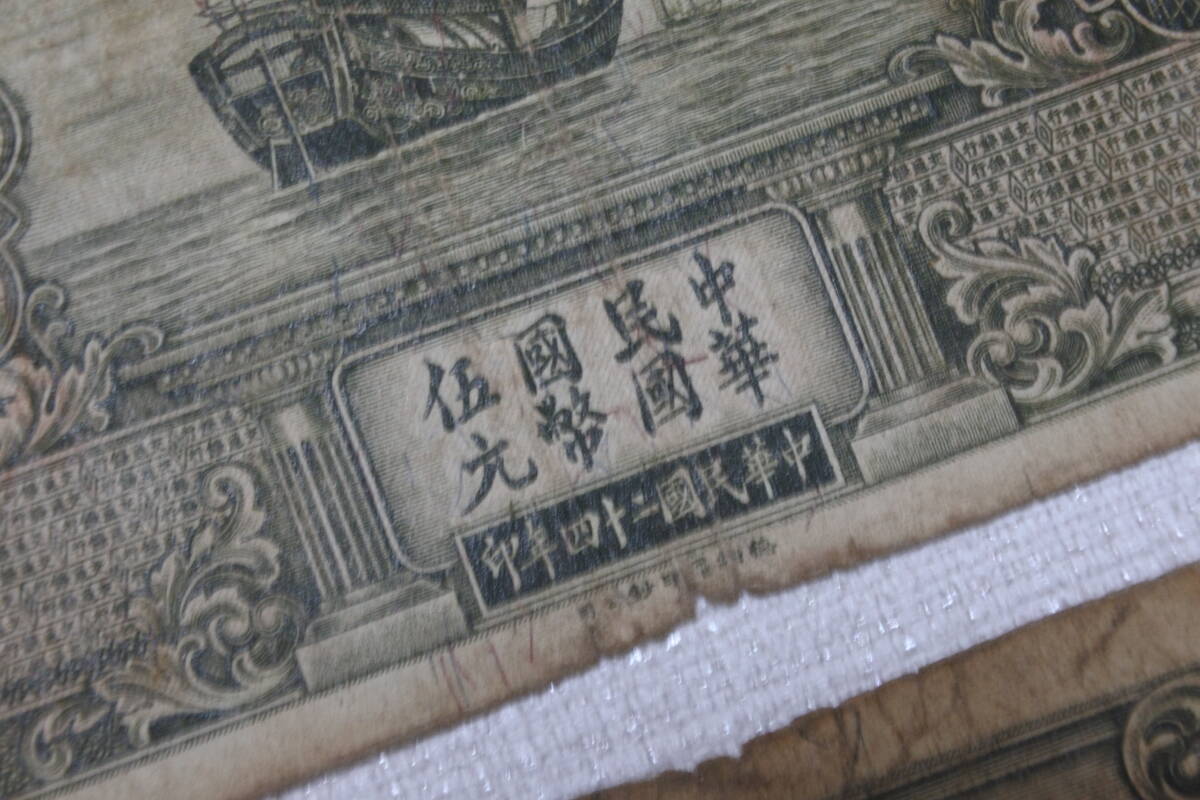 中華
民國
國幣
伍元
中華民國二十四年印
交通銀行